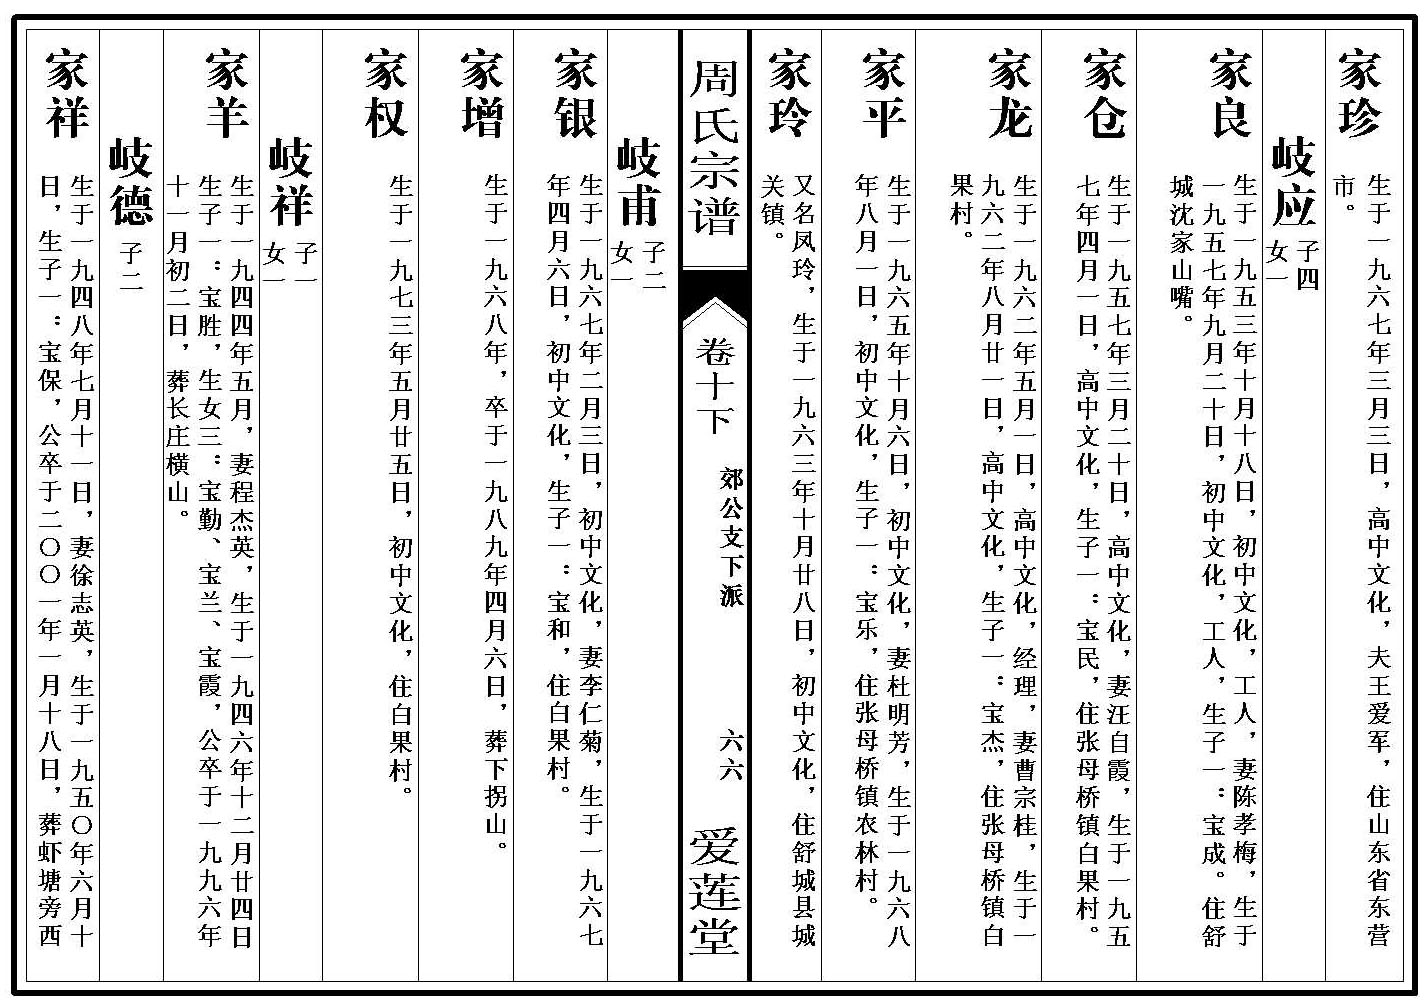 家珍
生于一九六七年三月三日，高中文化，夫王爱军，住山东省东营
市。
岐应
子四
女一
家良
生于一九五三年十月十八日，初中文化，工人，妻陈孝梅，生于
一九五七年九月二十日，初中文化，工人，生子一：宝成。住舒
城沈家山嘴。
家仓
生于一九五七年三月二十日，高中文化，妻汪自霞，生于一九五
七年四月一日，高中文化，生子一：宝民，住张母桥镇白果村。
家龙
生于一九六二年五月一日，高中文化，经理，妻曹宗桂，生于一
九六二年八月廿一日，高中文化，生子一：宝杰，住张母桥镇白
果村。
家平
生于一九六五年十月六日，初中文化，妻杜明芳，生于一九六八
年八月一日，初中文化，生子一：宝乐，住张母桥镇农林村。
家玲
又名凤玲，生于一九六三年十月廿八日，初中文化，住舒城县城
关镇。
周氏宗谱
卷十下
郊公支下派
六六
爱莲堂
岐甫
子二
女一
家银
生于一九六七年二月三日，初中文化，妻李仁菊，生于一九六七
年四月六日，初中文化，生子一：宝和，住白果村。
家增
生于一九六八年，卒于一九八九年四月六日，葬下拐山。
家权
生于一九七三年五月廿五日，初中文化，住白果村。
岐祥
子一
女一
家羊
生于一九四四年五月，妻程杰英，生于一九四六年十二月廿四日
生子一：宝胜，生女三：宝勤、宝兰、宝霞，公卒于一九九六年
十一月初二日，葬长庄横山。
岐德
子二
家祥
生于一九四八年七月十一日，妻徐志英，生于一九五〇年六月十
日，生子一：宝保，公卒于二〇〇一年一月十八日，葬虾塘旁西